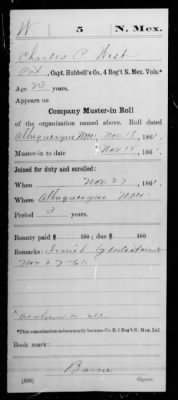 W 5 N. Mex.
Charles P. West
Pvt., Capt. Hubbell's Co., 4 Reg't N. Mex. Vols.*
Age 23 years.
Appears on
Company Muster-in Roll
of the organization named above. Roll dated
Albuquerque N.M., Nov 18, 186
Muster-in to date Nov 18, 186
Joined for duty and enrolled:
When Nov 27, 186
Where Albuquerque
Period 3 years.
Bounty paid $ 100; due $ 100
Remarks: Joined
Nov 27-61
*This organization subsequently became Co. B, 1 Reg't N. Mex. Inf.
Book mark:
(356) Copyist.